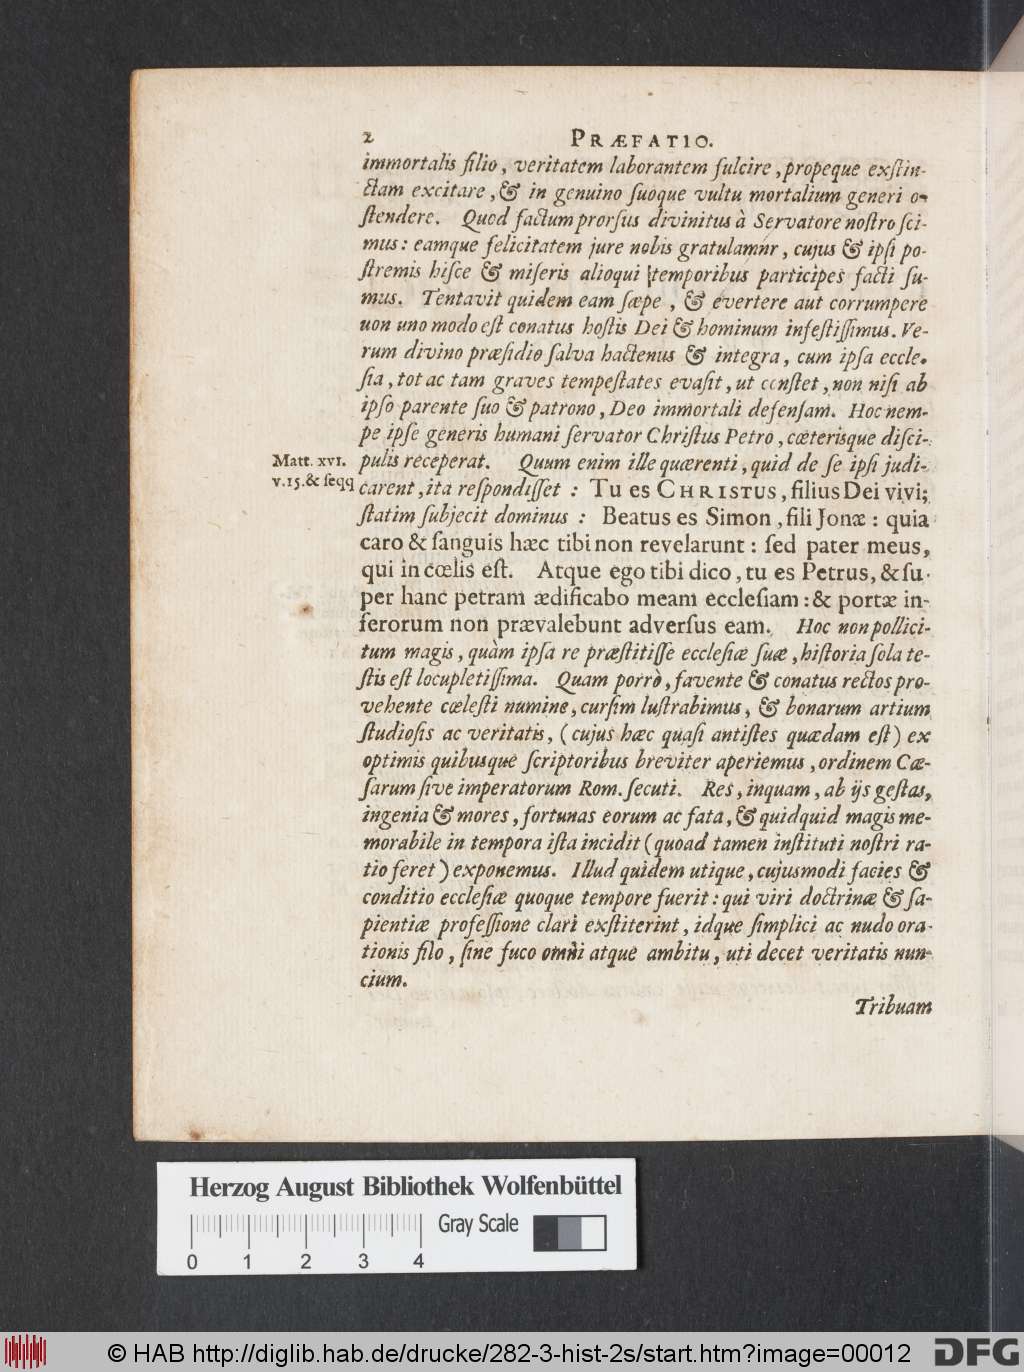 2 PRÆFATIO.
immortalis filio, veritatem laborantem fulcire, propeque exſtin-
ctam excitare, & in genuino ſuoque vultu mortalium generi o-
ſtendere. Quod factum prorſus divinitus à Servatore noſtro ſci-
mus: eamque felicitatem jure nobis gratulamnr, cujus & ipſi po-
ſtremis hiſce & miſeris alioqui temporibus participes facti ſu-
mus. Tentavit quidem eam ſæpe, & evertere aut corrumpere
uon uno modo eſt conatus hoſtis Dei & hominum infeſtiſſimus. Ve-
rum divino præſidio ſalva hactenus & integra, cum ipſa eccle-
ſia, tot ac tam graves tempeſtates evaſit, ut conſtet, non niſi ab
ipſo parente ſuo & patrono, Deo immortali defenſam. Hoc nem-
pe ipſe generis humani ſervator Chriſtus Petro, cæterisque diſci-
Matt. xvi.
v.15.& ſeqq
pulis receperat. Quum enim ille quærenti, quid de ſe ipſi judi-
carent, ita reſpondiſſet : Tu es CHRISTUS, filius Dei vivi;
ſtatim ſubjecit dominus : Beatus es Simon, fili Jonæ : quia
caro & ſanguis hæc tibi non revelarunt : ſed pater meus,
qui in cœlis eſt. Atque ego tibi dico, tu es Petrus, & ſu-
per hanc petram ædificabo meam eccleſiam : & portæ in-
ferorum non prævalebunt adverſus eam. Hoc non pollici-
tum magis, quàm ipſa re præſtitiſſe eccleſiæ ſuæ, hiſtoria ſola te-
ſtis eſt locupletiſſima. Quam porrò, favente & conatus rectos pro-
vehente cæleſti numine, curſim luſtrabimus, & bonarum artium
ſtudioſis ac veritatis, (cujus hæc quaſi antiſtes quædam eſt) ex
optimis quibusque ſcriptoribus breviter aperiemus, ordinem Cæ-
ſarum ſive imperatorum Rom. ſecuti. Res, inquam, ab ijs geſtas,
ingenia & mores, fortunas eorum ac fata, & quidquid magis me-
morabile in tempora iſta incidit (quoad tamen inſtituti noſtri ra-
tio feret) exponemus. Illud quidem utique, cujusmodi facies &
conditio eccleſiæ quoque tempore fuerit : qui viri doctrinæ & ſa-
pientiæ profeſſione clari exſtiterint, idque ſimplici ac nudo ora-
tionis filo, ſine fuco omni atque ambitu, uti decet veritatis nun-
cium.
Tribuam
Herzog August Bibliothek Wolfenbüttel
Gray Scale
0 1 2 3 4
© HAB http://diglib.hab.de/drucke/282-3-hist-2s/start.htm?image=00012
DFG